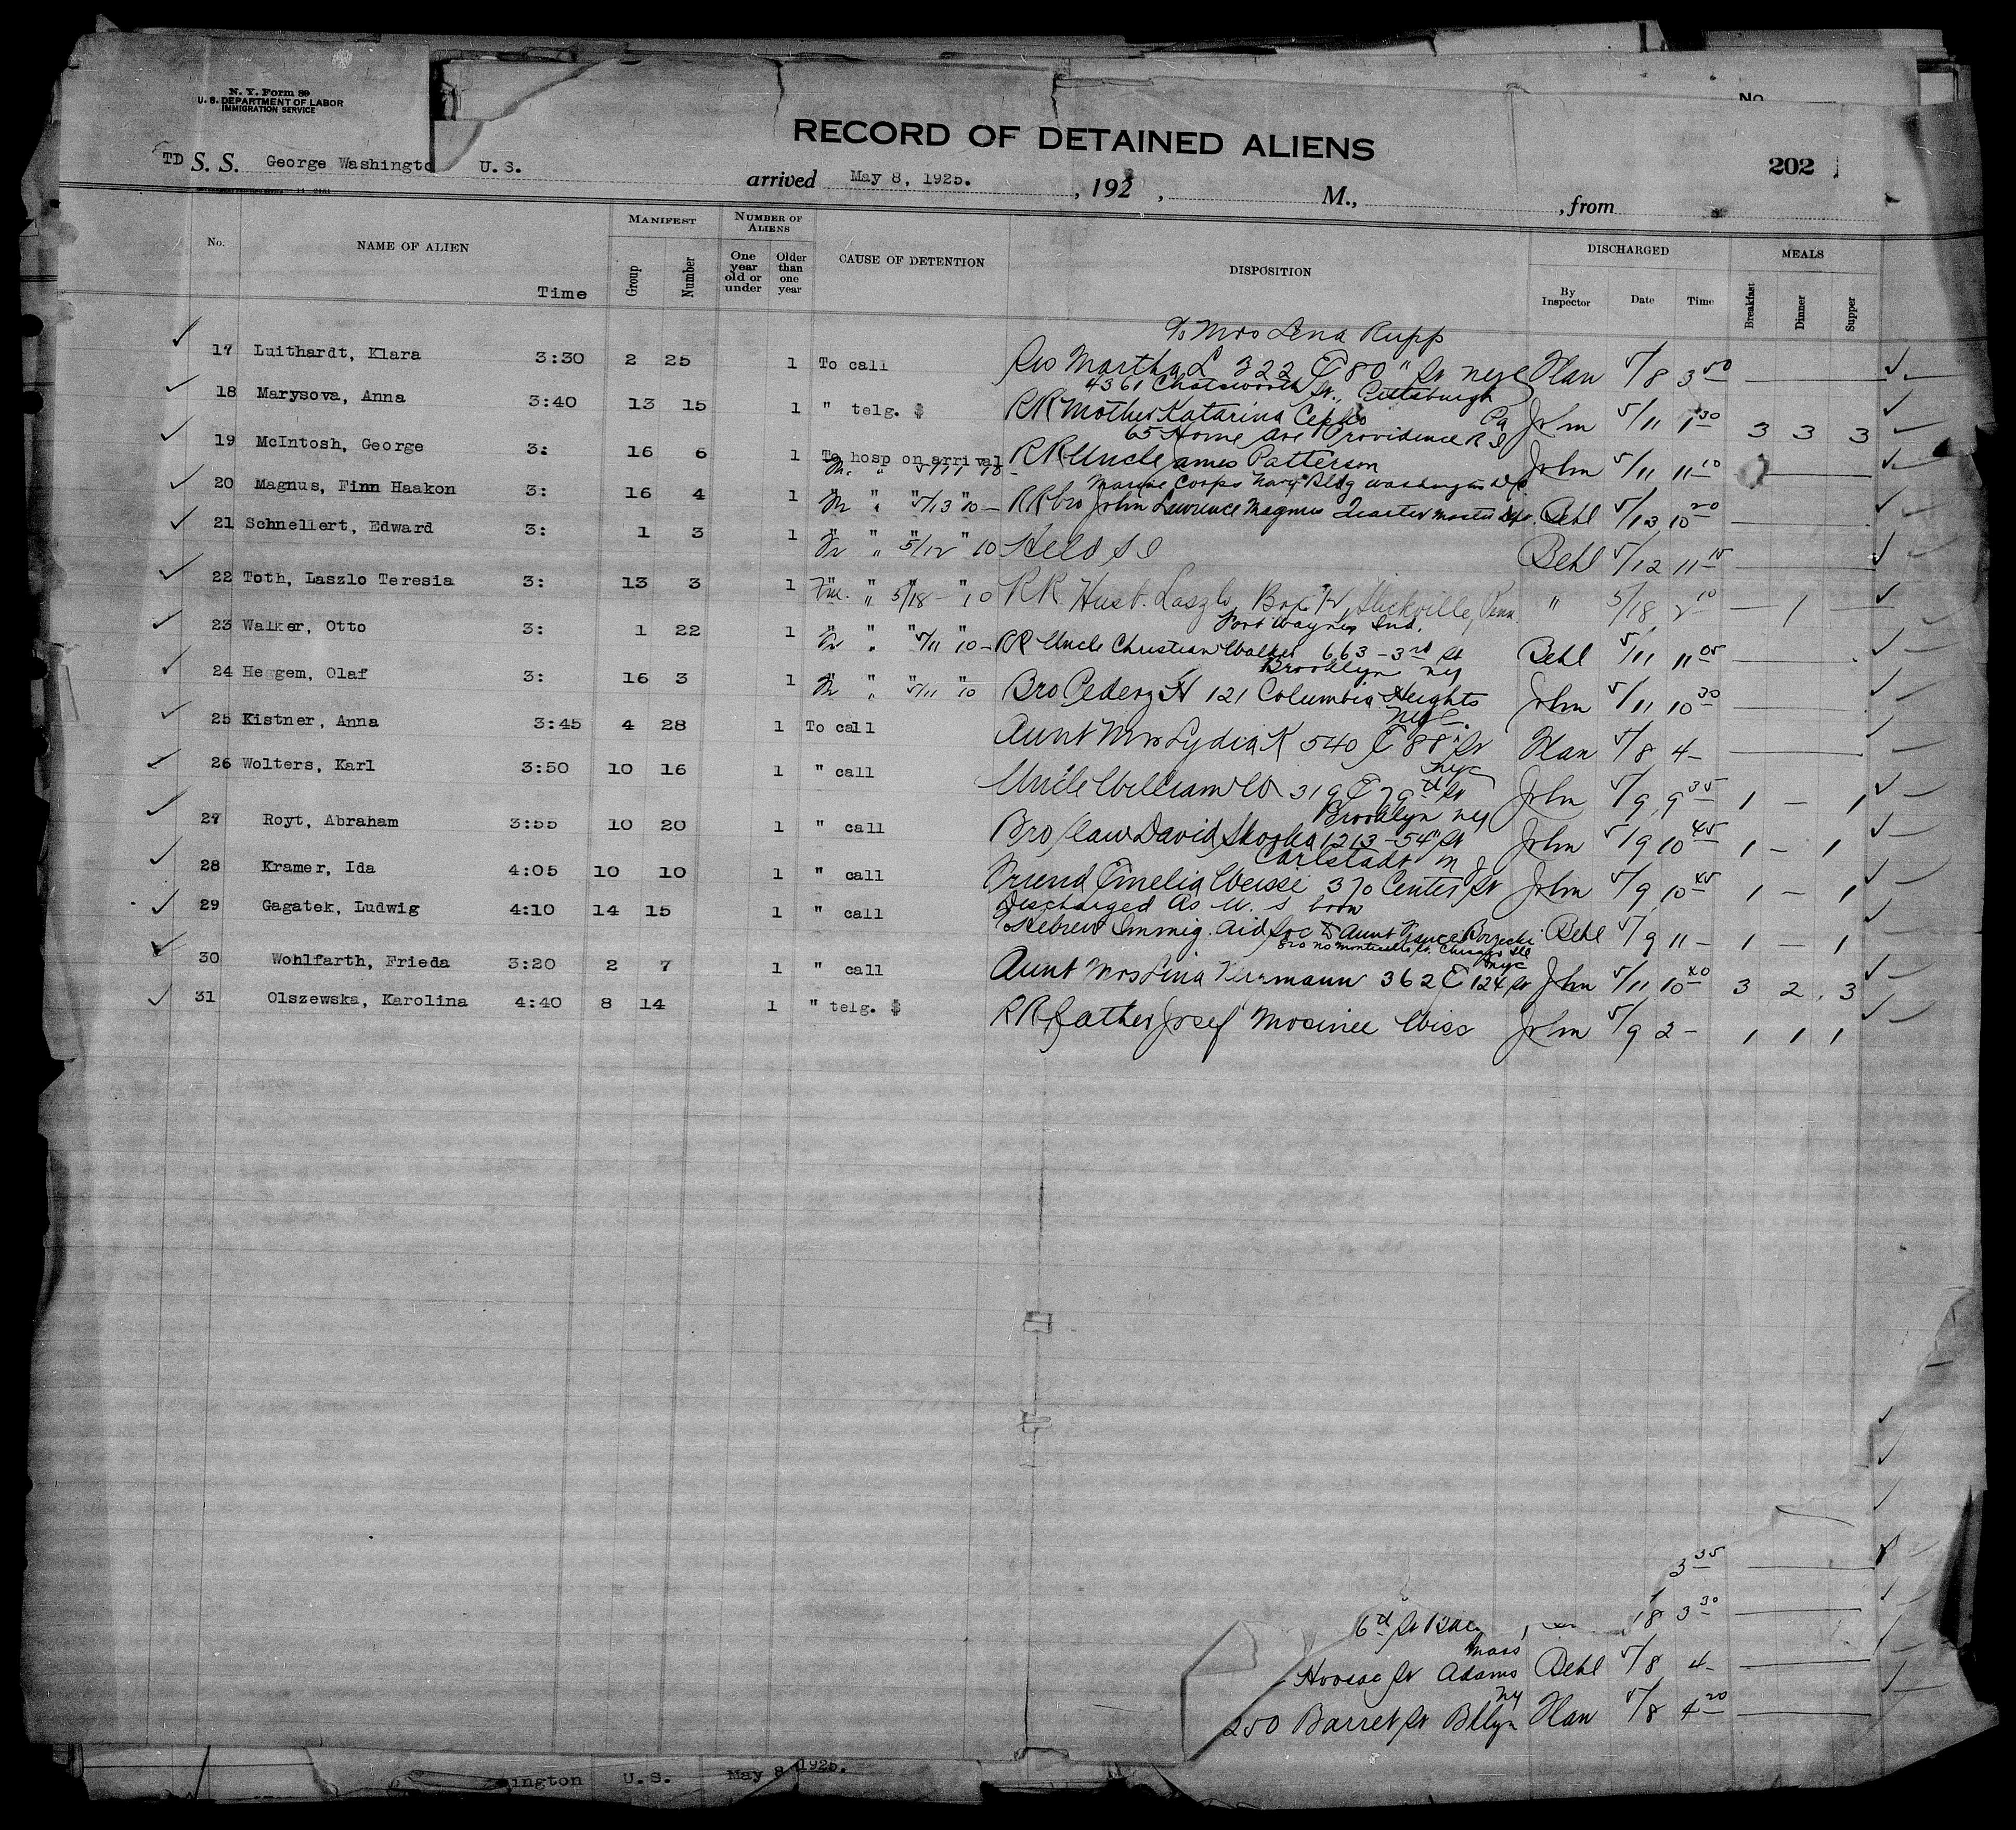 N. Y. Form 89
U. S. DEPARTMENT OF LABOR
IMMIGRATION SERVICE
No.
RECORD OF DETAINED ALIENS
TD S. S. George Washingto U.S. arrived May 8, 1925. , 192 , M., , from
202
No. NAME OF ALIEN Time MANIFEST Group Number NUMBER OF ALIENS One year old or under Older than one year CAUSE OF DETENTION DISPOSITION DISCHARGED By Inspector Date Time MEALS Breakfast Dinner Supper
% Mrs Lena Rupp
17 Luithardt, Klara 3:30 2 25 1 To call Sis Martha L 322 E 80 " St NYC Han 5/8 3 50
4361 Chatsworth St., Pittsburgh
18 Marysova, Anna 3:40 13 15 1 " telg. $ RR Mother Katarina Pa John 5/11 1 30 3 3 3
65 Home Ave Providence R I
19 McIntosh, George 3: 16 6 1 To hosp on arrival RR Uncle James Patterson John 5/11 11 10
Marine Corps Navy Bldg Washington DC
20 Magnus, Finn Haakon 3: 16 4 1 " " " 5/13 " 10 — RR bro John Lawrence Magnus Quarter Master Dept. Behl 5/13 10 20
21 Schnellert, Edward 3: 1 3 1 " " 5/12 " 10 Held S I Behl 5/12 11 15
22 Toth, Laszlo Teresia 3: 13 3 1 " " 5/18 — " 10 RR Husb. Laszlo, Box 72, Slickville, Penn. " 5/18 2 10 — 1
Fort Wayne, Ind.
23 Walker, Otto 3: 1 22 1 " " 5/11 " 10 — RR Uncle Christian Walker 663 - 3rd St Behl 5/11 11 05
Brooklyn NY
24 Heggem, Olaf 3: 16 3 1 " " 5/11 " 10 Bro Peder H 121 Columbia Heights John 5/11 10 30
NYC.
25 Kistner, Anna 3:45 4 28 1 To call Aunt Mrs Lydia K 540 E 88 " St Han 5/8 4 -
NYC
26 Wolters, Karl 3:50 10 16 1 " call Uncle William W 319 E 79 th St John 5/9 9 35 1 — 1
Brooklyn NY
27 Royt, Abraham 3:55 10 20 1 " call Bro/law David 1213 - 54 " St John 5/9 10 45 1 — 1
Carlstadt N J
28 Kramer, Ida 4:05 10 10 1 " call Friend Emelia Weisse 370 Center St John 5/9 10 45 1 — 1
Discharged as U. S born
29 Gagatek, Ludwig 4:10 14 15 1 " call Hebrew Immig. Aid Soc to Aunt Behl 5/9 11 - 1 — 1
No Monticello St. Chicago Ill
NYC
30 Wohlfarth, Frieda 3:20 2 7 1 " call Aunt Mrs Lina Herrmann 362 E 124 St John 5/11 10 40 3 2 3
31 Olszewska, Karolina 4:40 8 14 1 " telg. $ RR father Josef Mosinee Wisc John 5/9 2 - 1 1 1
3 35
6 th St 8 3 30
Mass
Hoosac St Adams Behl 5/8 4 -
NY
250 Barret St Bklyn Han 5/8 4 20
ington U.S. May 8 1925.